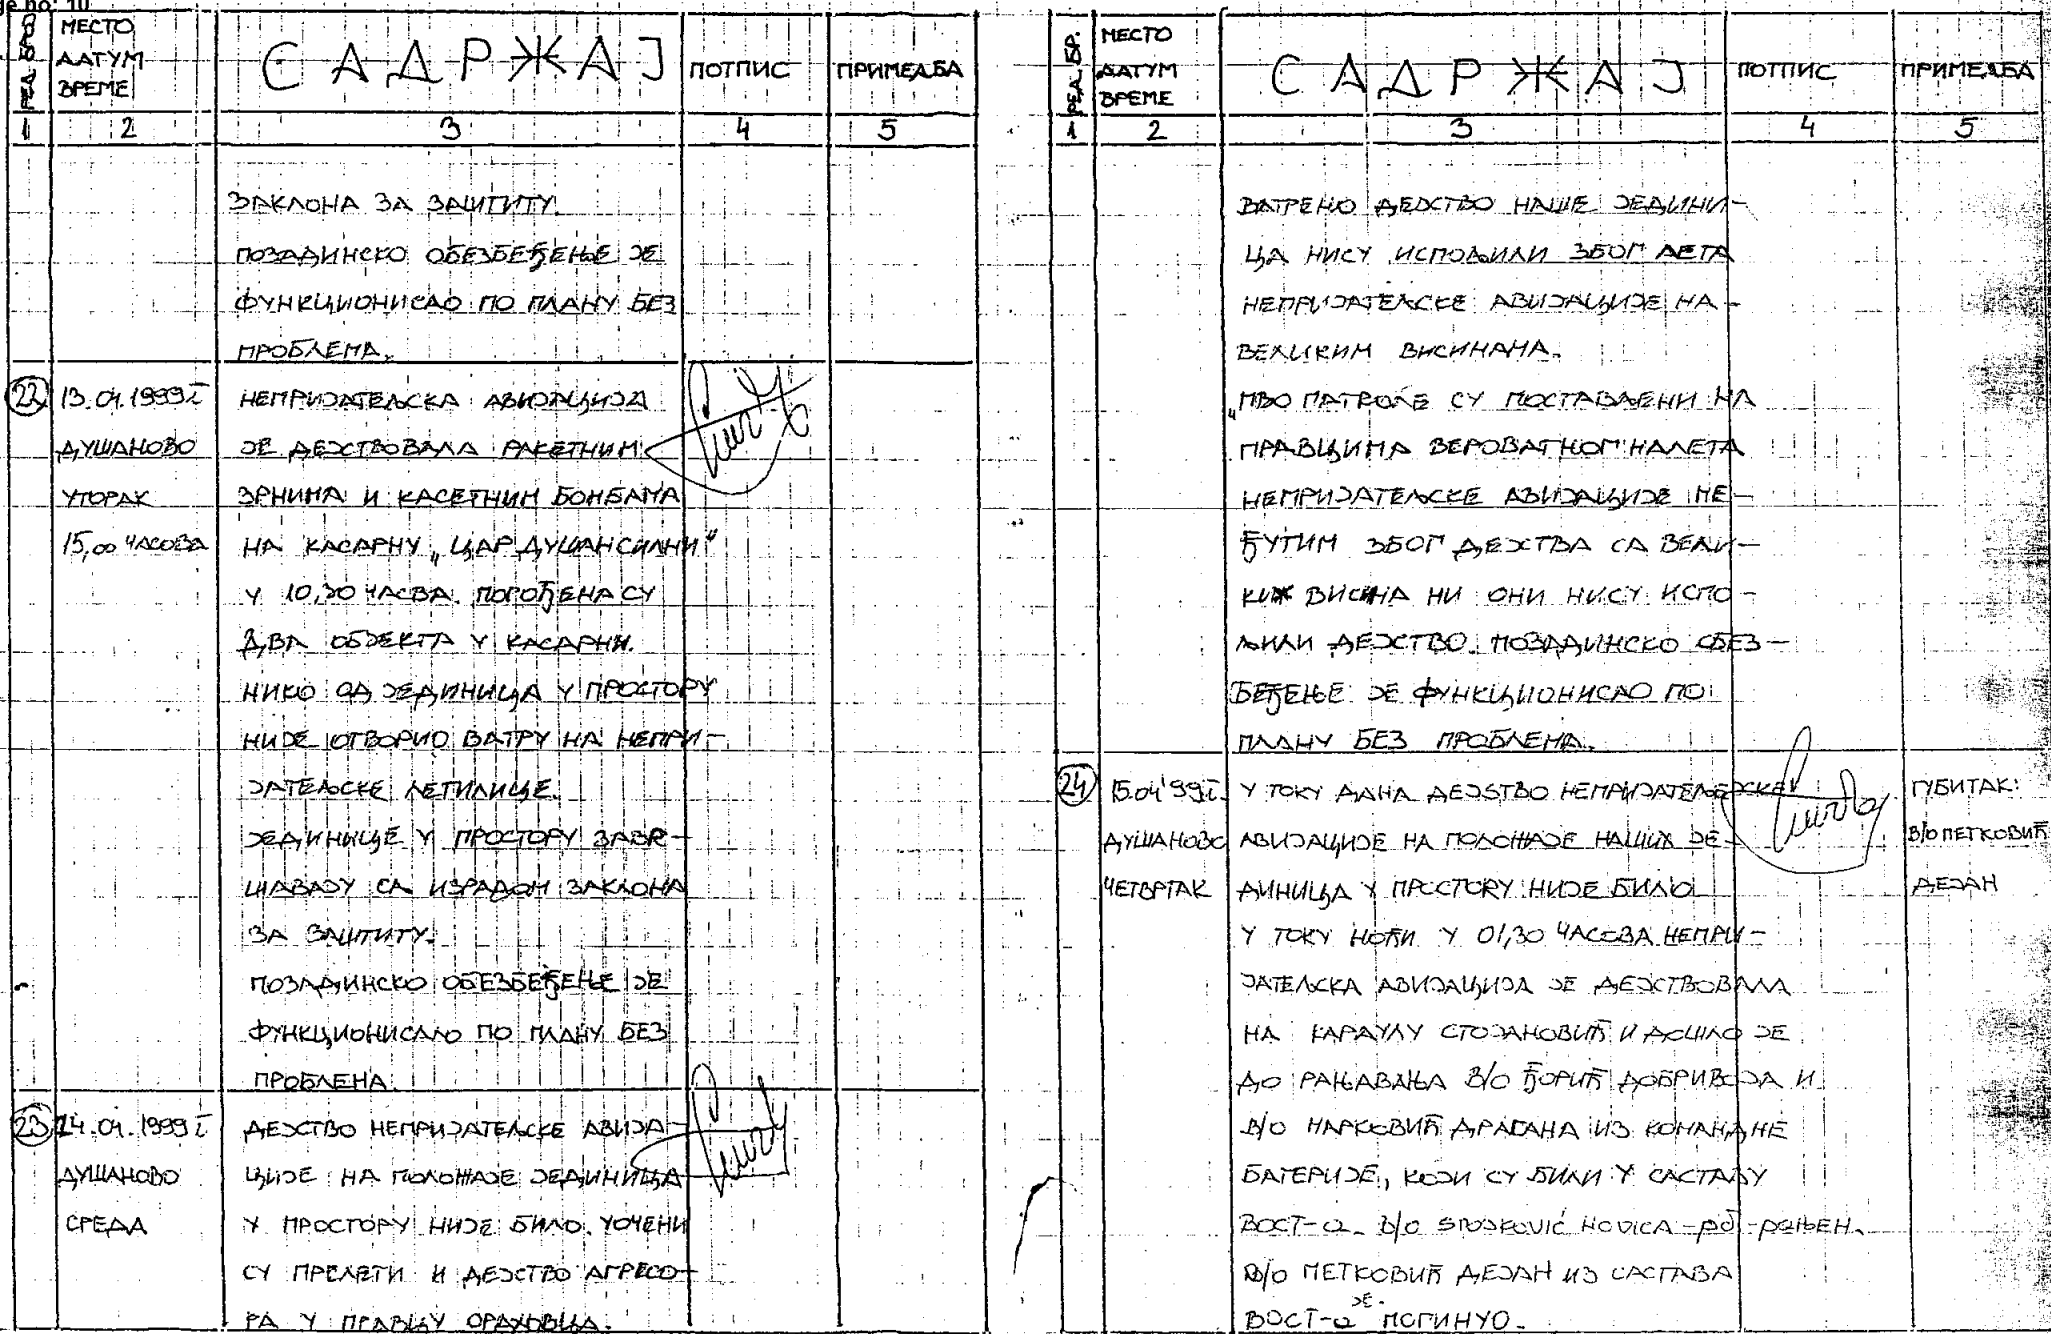 ge no: 10
РЕД. БРОЈ
МЕСТО
ДАТУМ
ВРЕМЕ
САДРЖАЈ
ПОТПИС
ПРИМЕДБА
1 2 3 4 5
ЗАКЛОНА ЗА ЗАШТИТУ.
ПОЗАДИНСКО ОБЕЗБЕЂЕЊЕ ЈЕ
ФУНКЦИОНИСАО ПО ПЛАНУ БЕЗ
ПРОБЛЕМА.
22 13.04.1999г НЕПРИЈАТЕЉСКА АВИЈАЦИЈА
ДУШАНОВО ЈЕ ДЕЈСТВОВАЛА РАКЕТНИМ
УТОРАК ЗРНИМА И КАСЕТНИМ БОМБАМА
15,00 ЧАСОВА НА КАСАРНУ „ЦАР ДУШАН СИЛНИ“
У 10,30 ЧАСВА. ПОГОЂЕНА СУ
ДВА ОБЈЕКТА У КАСАРНИ.
НИКО ОД ЈЕДИНИЦА У ПРОСТОРУ
НИЈЕ ОТВОРИО ВАТРУ НА НЕПРИ-
ЈАТЕЉСКЕ ЛЕТИЛИЦЕ.
ЈЕДИНИЦЕ У ПРОСТОРУ ЗАВР-
ШАВАЈУ СА ИЗРАДОМ ЗАКЛОНА
ЗА ЗАШТИТУ.
ПОЗАДИНСКО ОБЕЗБЕЂЕЊЕ ЈЕ
ФУНКЦИОНИСАЛО ПО ПЛАНУ БЕЗ
ПРОБЛЕМА.
23 14.04.1999г ДЕЈСТВО НЕПРИЈАТЕЉСКЕ АВИЈА-
ДУШАНОВО ЦИЈЕ НА ПОЛОЖАЈЕ ЈЕДИНИЦА
СРЕДА У ПРОСТОРУ НИЈЕ БИЛО. УОЧЕНИ
СУ ПРЕЛЕТИ И ДЕЈСТВО АГРЕСО-
РА У ПРАВЦУ ОРАХОВЦА.
РЕД. БР.
МЕСТО
ДАТУМ
ВРЕМЕ
САДРЖАЈ
ПОТПИС
ПРИМЕДБА
1 2 3 4 5
ВАТРЕНО ДЕЈСТВО НАШЕ ЈЕДИНИ-
ЦА НИСУ ИСПОЉИЛИ ЗБОГ ЛЕТА
НЕПРИЈАТЕЉСКЕ АВИЈАЦИЈЕ НА -
ВЕЛИКИМ ВИСИНАМА.
„ПВО ПАТРОЛЕ СУ ПОСТАВЉЕНИ НА
ПРАВЦИМА ВЕРОВАТНОГ НАЛЕТА
НЕПРИЈАТЕЉСКЕ АВИЈАЦИЈЕ МЕ-
ЂУТИМ ЗБОГ ДЕЈСТВА СА ВЕЛИ-
КИХ ВИСИНА НИ ОНИ НИСУ ИСПО-
ЉИЛИ ДЕЈСТВО. ПОЗАДИНСКО ОБЕЗ-
БЕЂЕЊЕ ЈЕ ФУНКЦИОНИСАО ПО
ПЛАНУ БЕЗ ПРОБЛЕМА.
24 15.04'99г. У ТОКУ ДАНА ДЕЈSТВО НЕПРИЈАТЕЉСКЕ ГУБИТАК:
ДУШАНОВО АВИЈАЦИЈЕ НА ПОЛОЖАЈЕ НАШИХ ЈЕ- В/О ПЕТКОВИЋ
ЧЕТВРТАК ДИНИЦА У ПРОСТОРУ НИЈЕ БИЛО ДЕЈАН
У ТОКУ НОЋИ У 01,30 ЧАСОВА НЕПРИ-
ЈАТЕЉСКА АВИЈАЦИЈА ЈЕ ДЕЈСТВОВАЛА
НА КАРАУЛУ СТОЈАНОВИЋ И ДОШЛО ЈЕ
ДО РАЊАВАЊА В/О ЂОРИЋ ДОБРИВОЈА И
В/О МАРКОВИЋ ДРАГАНА ИЗ КОМАНДНЕ
БАТЕРИЈЕ, КОЈИ СУ БИЛИ У САСТАВУ
ВОСТ-а. В/О STOJKOVIĆ NOVICA - рањЕН.
В/О ПЕТКОВИЋ ДЕЈАН ИЗ САСТАВА
ВОСТ-а ЈЕ ПОГИНУО.